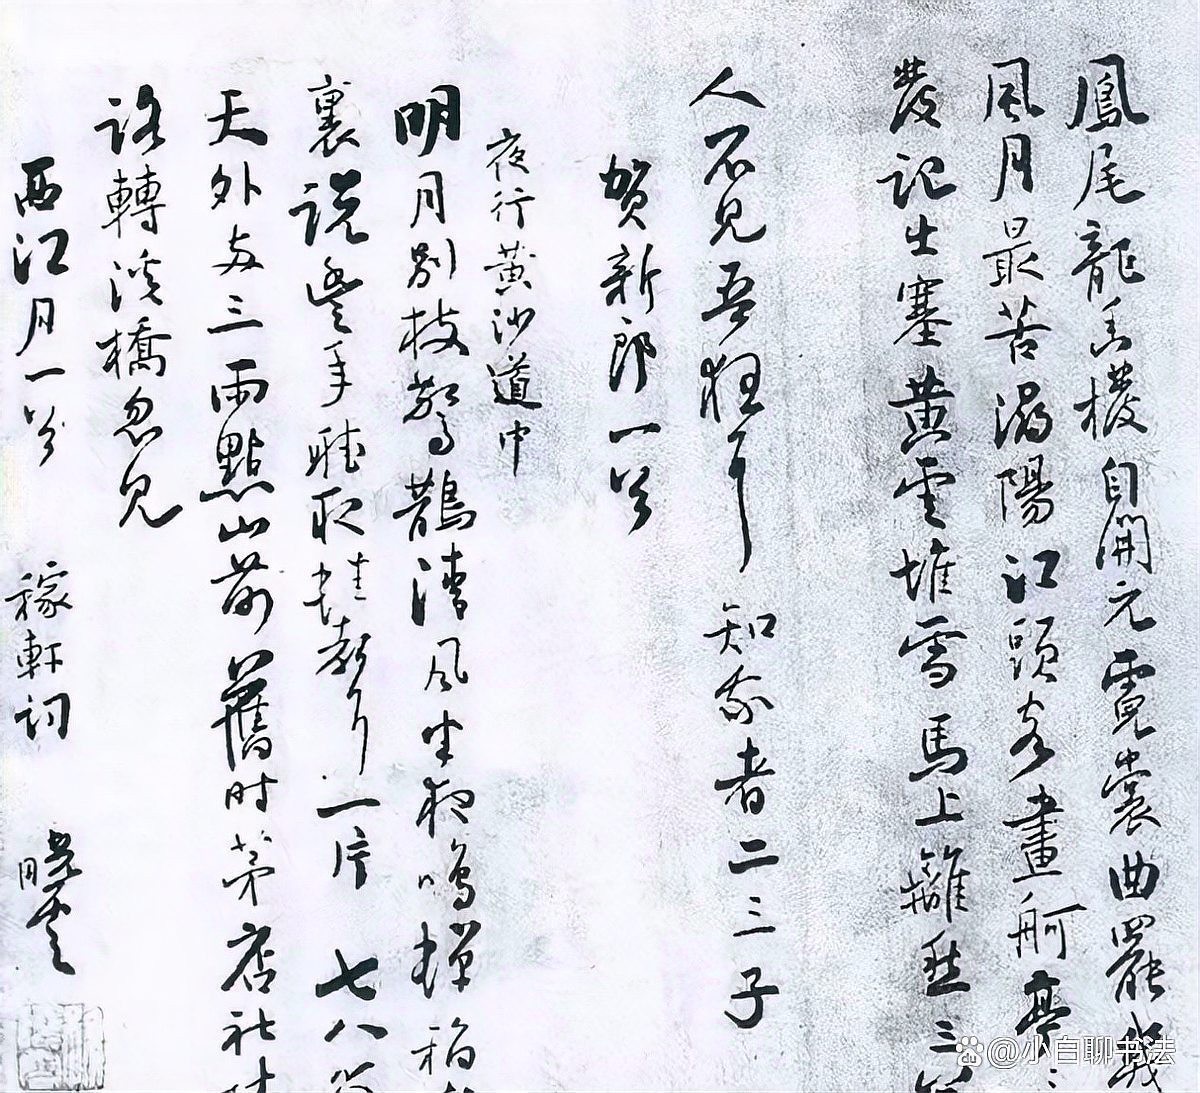 鳳尾龍香撥自開元霓裳曲罷幾
風月最苦潯陽江頭客畫舸亭亭
發記出塞黃雲堆雪馬上離愁三
人不見吾狂耳 知我者二三子
賀新郎一首
夜行黃沙道中
明月別枝驚鵲清風半夜鳴蟬稻
裏說豐年聽取蛙聲一片 七八箇
天外兩三雨點山前舊时茅店社林
路轉溪橋忽見
西江月一首 稼軒詞 曉雲
@小白聊书法